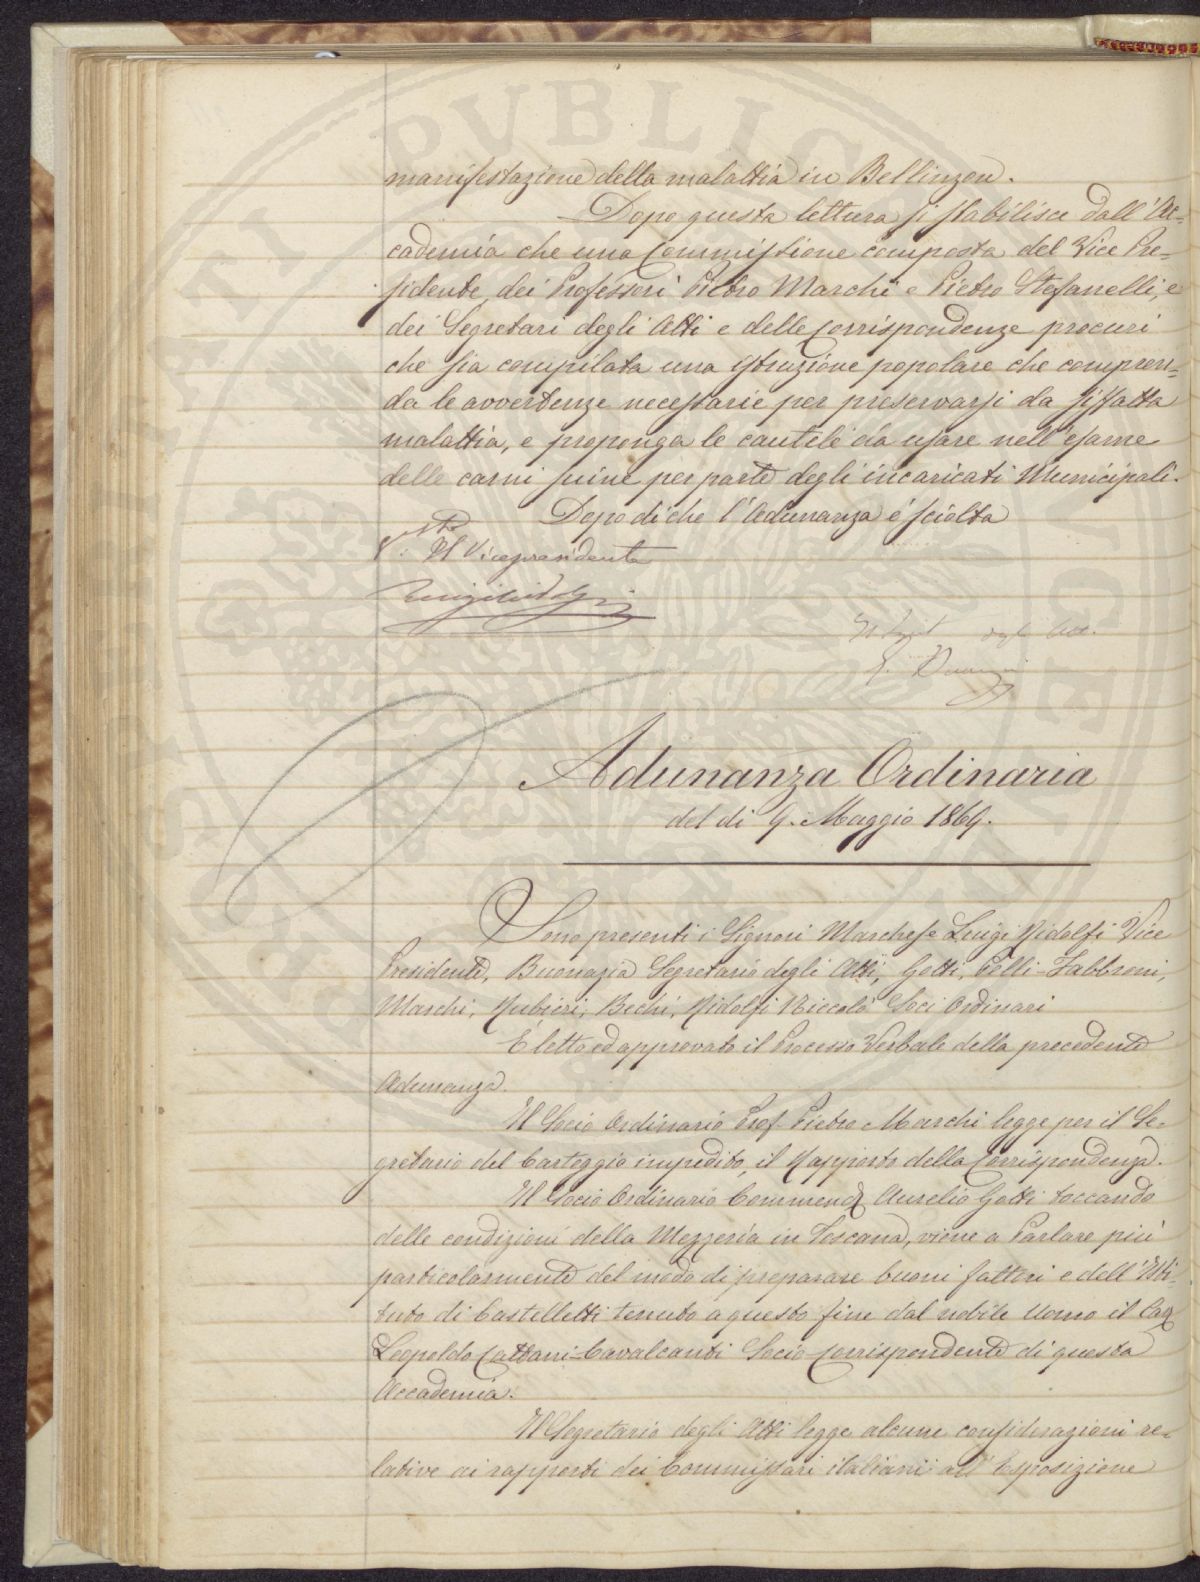 manifestazione della malattia in Bellinzon.
Dopo questa lettura si stabilisce dall'Ac-
cademia che una Commissione composta del Vice Pre-
sidente, dei Professori Pietro Marchi e Pietro Stefanelli, e
dei Segretari degli Atti e delle Corrispondenze procuri
che sia compilata una Istruzione popolare che compren-
da le avvertenze necessarie per preservarsi da siffatta
malattia, e proponga le cautele da usare nell'esame
delle carni suine per parte degli incaricati Municipali.
Dopo di che l'Adunanza è sciolta
Il Vicepresidente
Luigi Ridolfi
Il Segret degli Atti
Adunanza Ordinaria
del di 9. Maggio 1869.
Sono presenti i Signori Marchese Luigi Ridolfi Vice
Presidente, Buonazia Segretario degli Atti, Gotti, Pelli-Fabbroni,
Marchi, Rubieri, Bechi, Ridolfi Niccolò Soci Ordinari
È letto ed approvato il Processo Verbale della precedente
Adunanza.
Il Socio Ordinario Prof. Pietro Marchi legge per il Se-
gretario del Carteggio impedito, il Rapporto della Corrispondenza.
Il Socio Ordinario Commend. Aurelio Gotti toccando
delle condizioni della Mezzeria in Toscana, viene a Parlare più
particolarmente del modo di preparare buoni fattori e dell'Isti-
tuto di Castelletti tenuto a questo fine dal nobile Uomo il Cav.
Leopoldo Cattani-Cavalcanti Socio Corrispondente di questa
Accademia.
Il Segretario degli Atti legge alcune considerazioni re-
lative ai rapporti dei Commissari italiani all'Esposizione